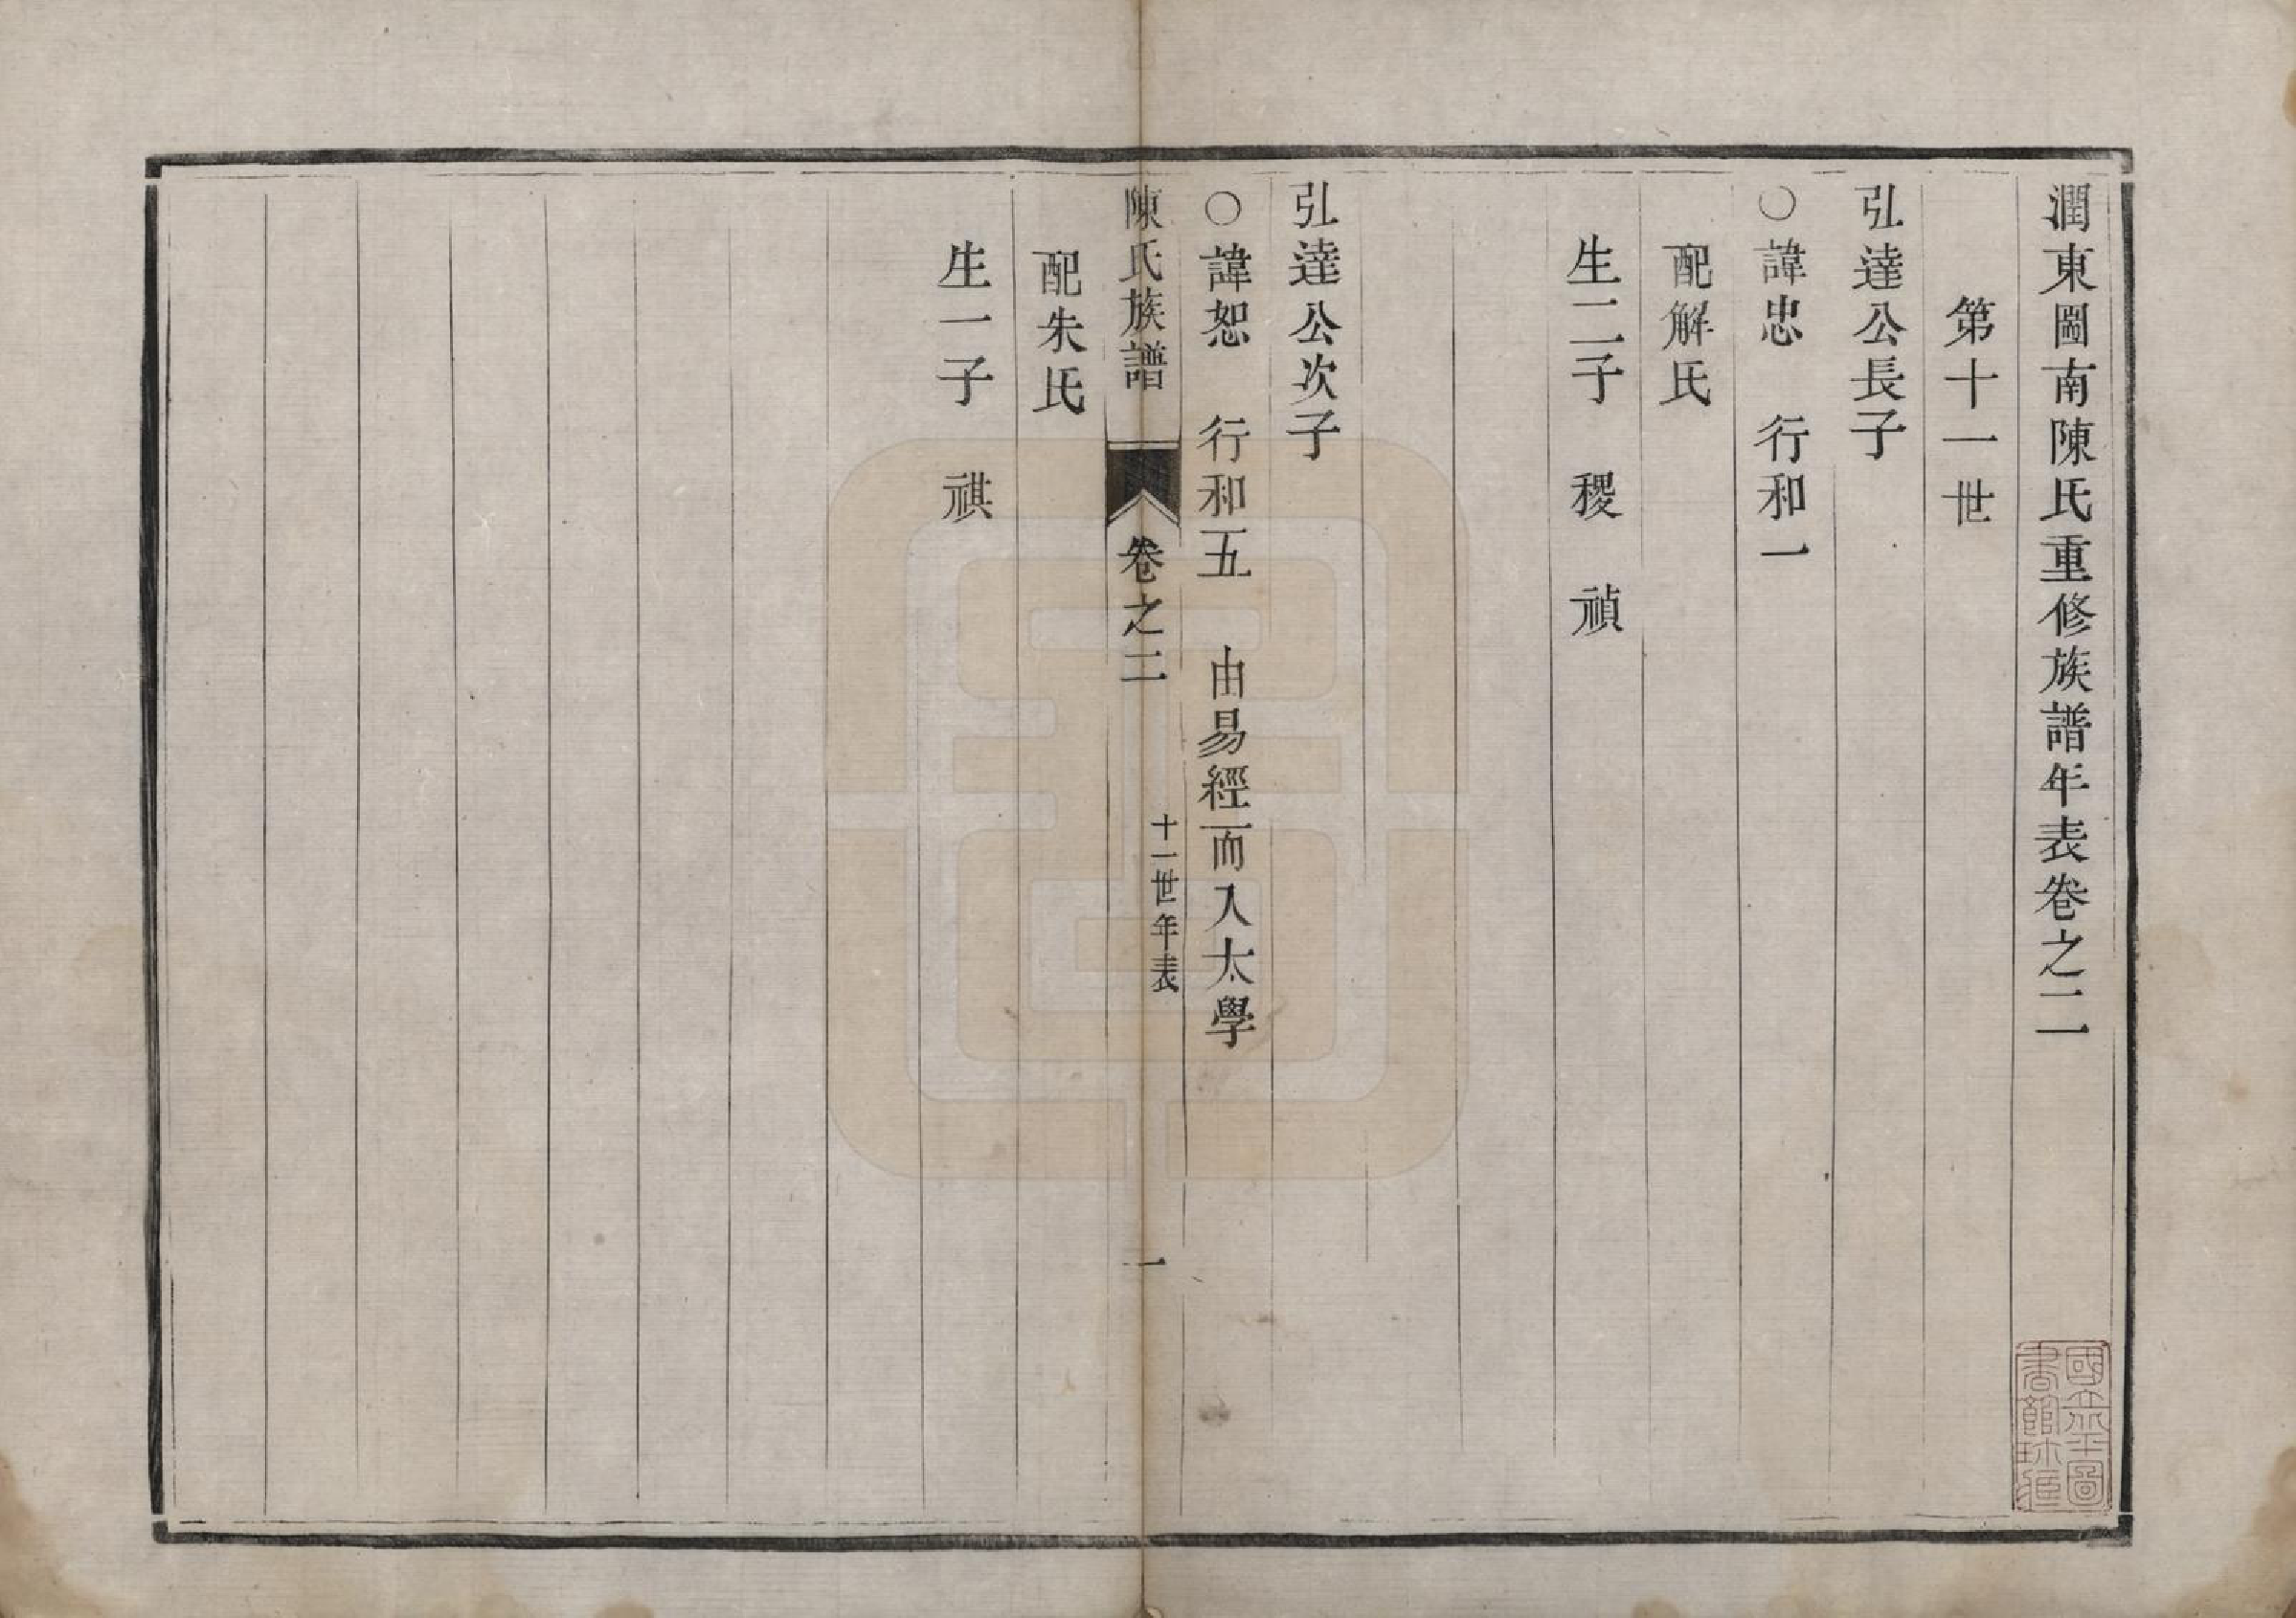 潤東圖南陳氏重修族譜年表卷之二
第十一世
弘達公長子
○諱忠 行和一
配解氏
生二子 稷 禎
弘達公次子
○諱恕 行和五 由易經而入太學
陳氏族譜 卷之二 十一世年表 一
配朱氏
生一子 祺
國立北平圖書館珍藏